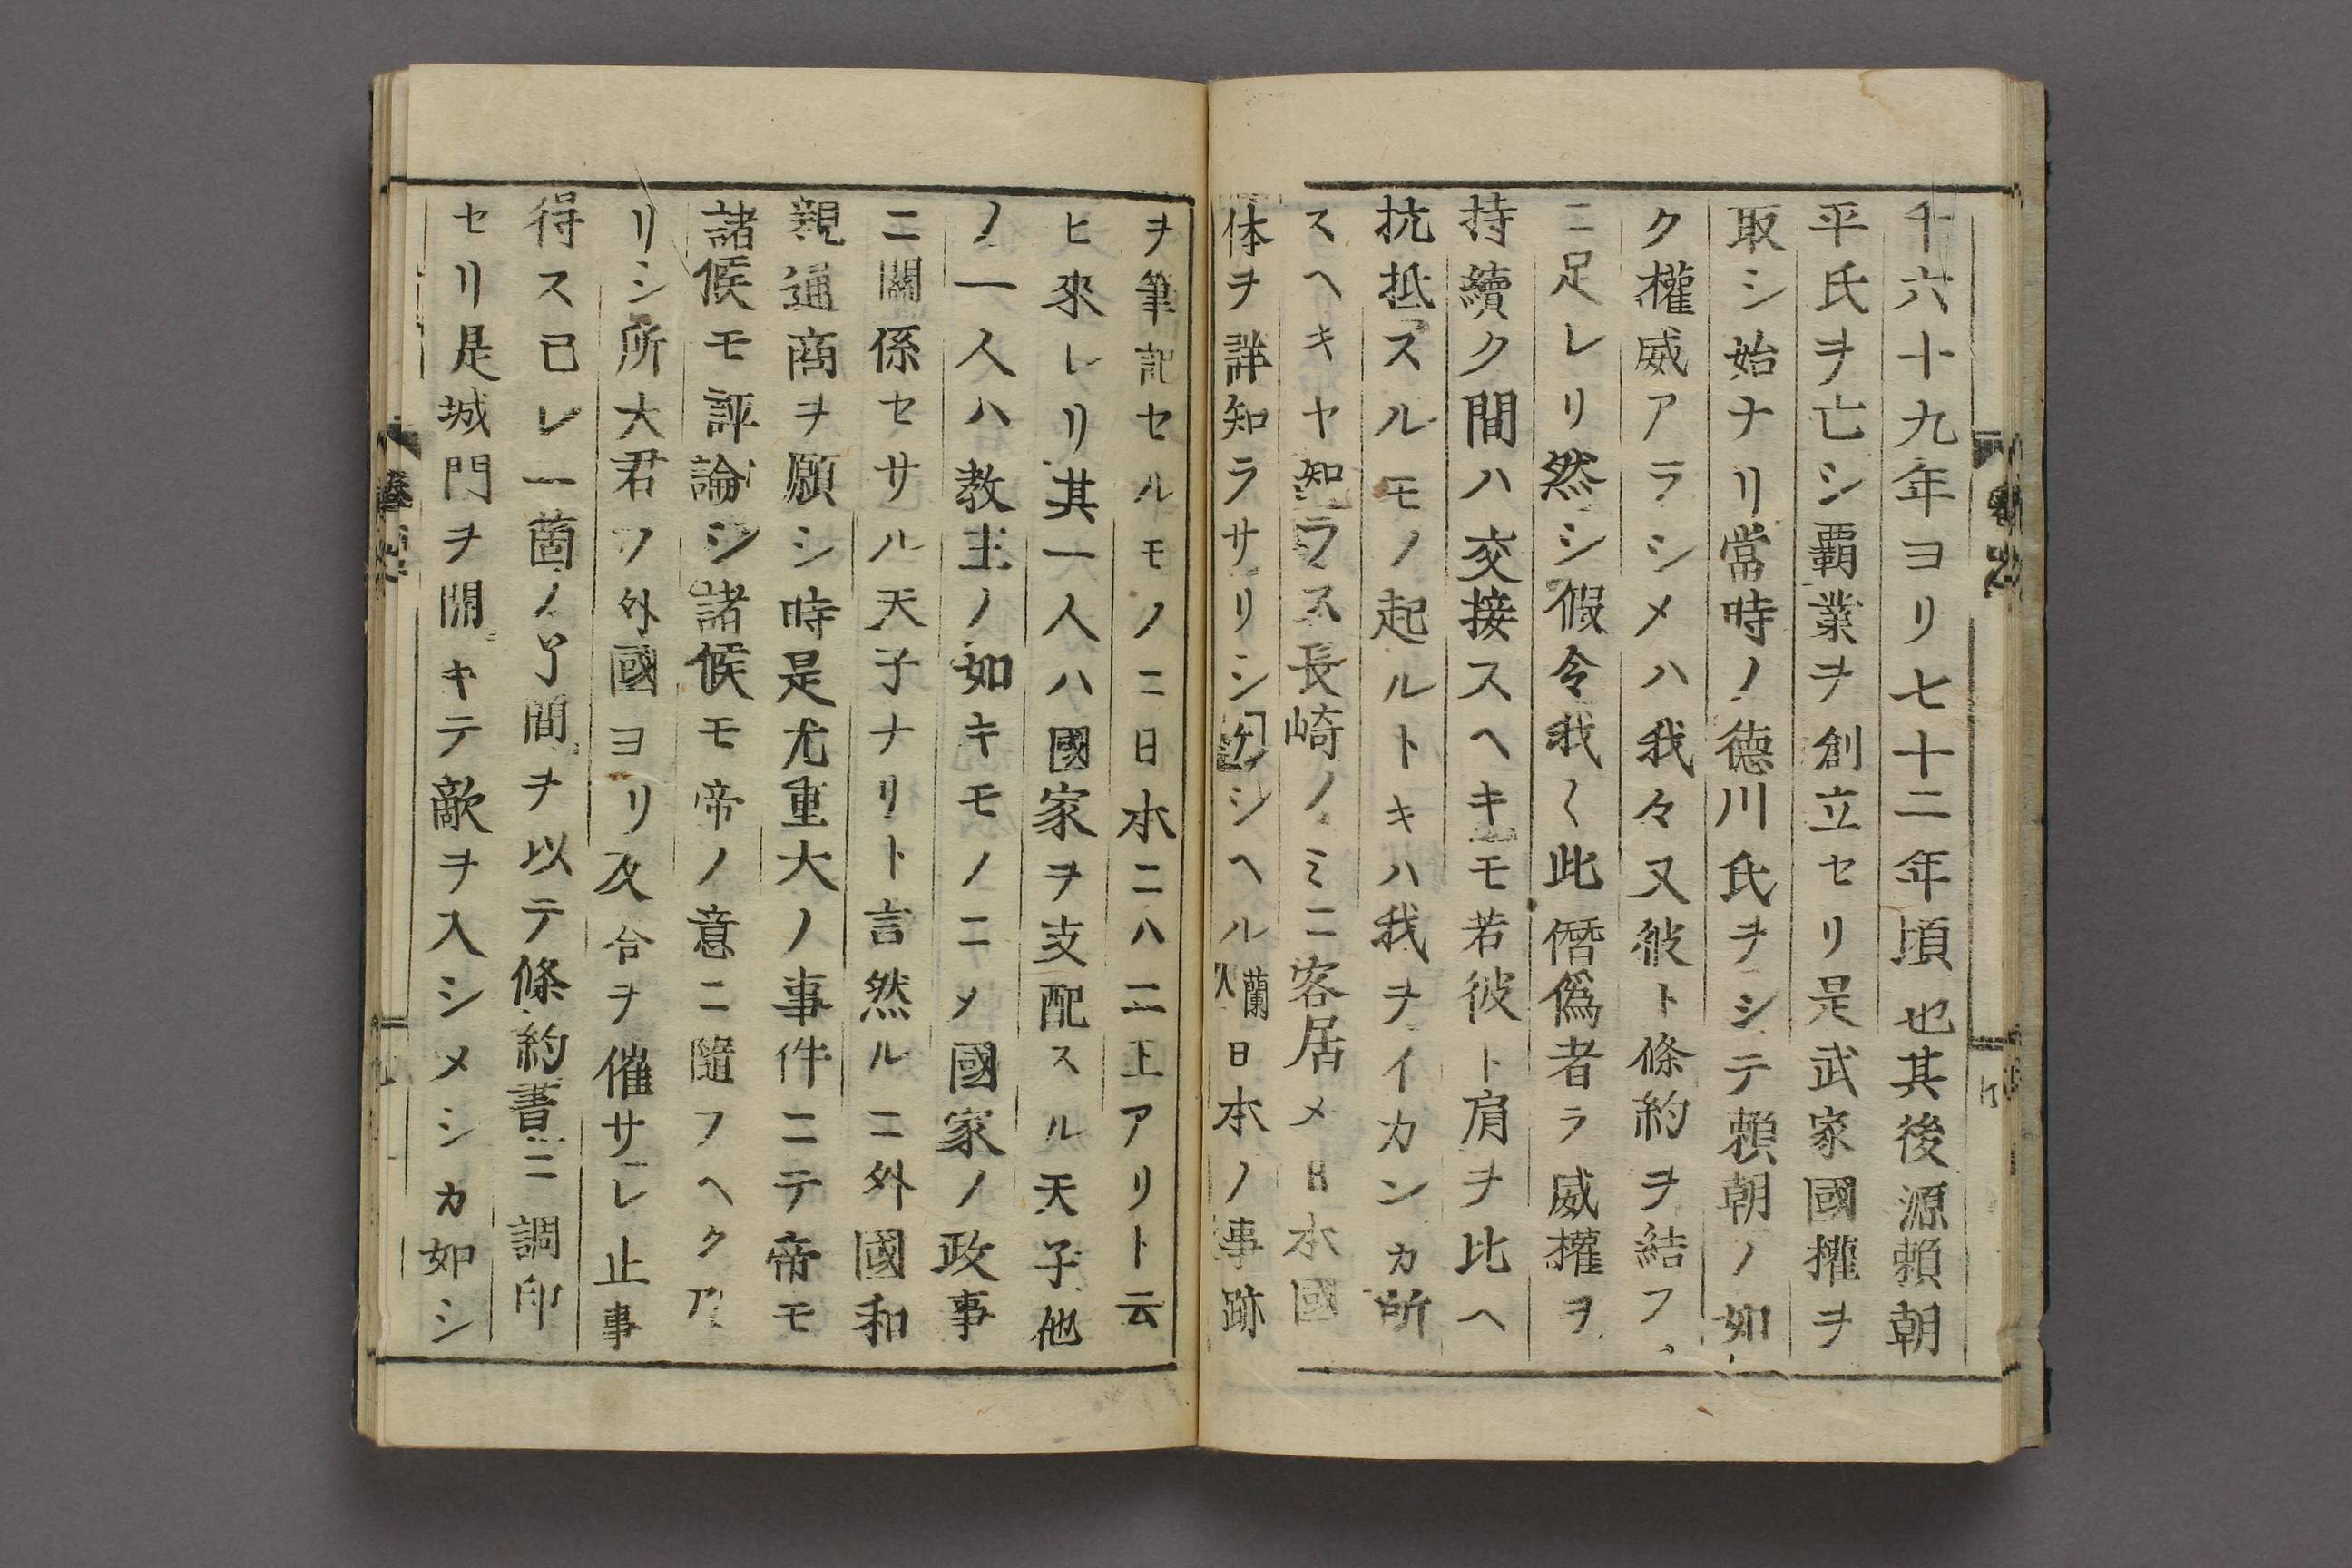 千六十九年ヨリ七十二年頃也其後源賴朝
平氏ヲ亡シ覇業ヲ創立セリ是武家國權ヲ
取シ始ナリ當時ノ徳川氏ヲシテ賴朝ノ如
ク權威アラシメハ我々又彼ト條約ヲ結フ、
ニ足レリ然シ假令我〱此僭僞者ラ威權ヲ
持續ク間ハ交接スヘキモ若彼ト肩ヲ比ヘ
抗抵スルモノ起ルトキハ我ヲイカンカ所
スヘキヤ知ラス長崎ノミニ客居メ日本國
体ヲ詳知ラサリシケンヘル蘭人日本ノ事跡
ヲ筆記セルモノニ日本ニハ二王アリト云
ヒ來レリ其一人ハ國家ヲ支配スル天子他
ノ一人ハ教主ノ如キモノニメ國家ノ政事
ニ關係セサル天子ナリト言然ルニ外國和
親通商ヲ願シ時是尤重大ノ事件ニテ帝モ
諸候モ評論シ諸候モ帝ノ意ニ隨フヘクア
リシ所大君ノ外國ヨリ及合ヲ催サレ止事
得ス已レ一箇ノ了間ヲ以テ條約書ニ調印
セリ是城門ヲ開キテ敵ヲ入シメシカ如シ